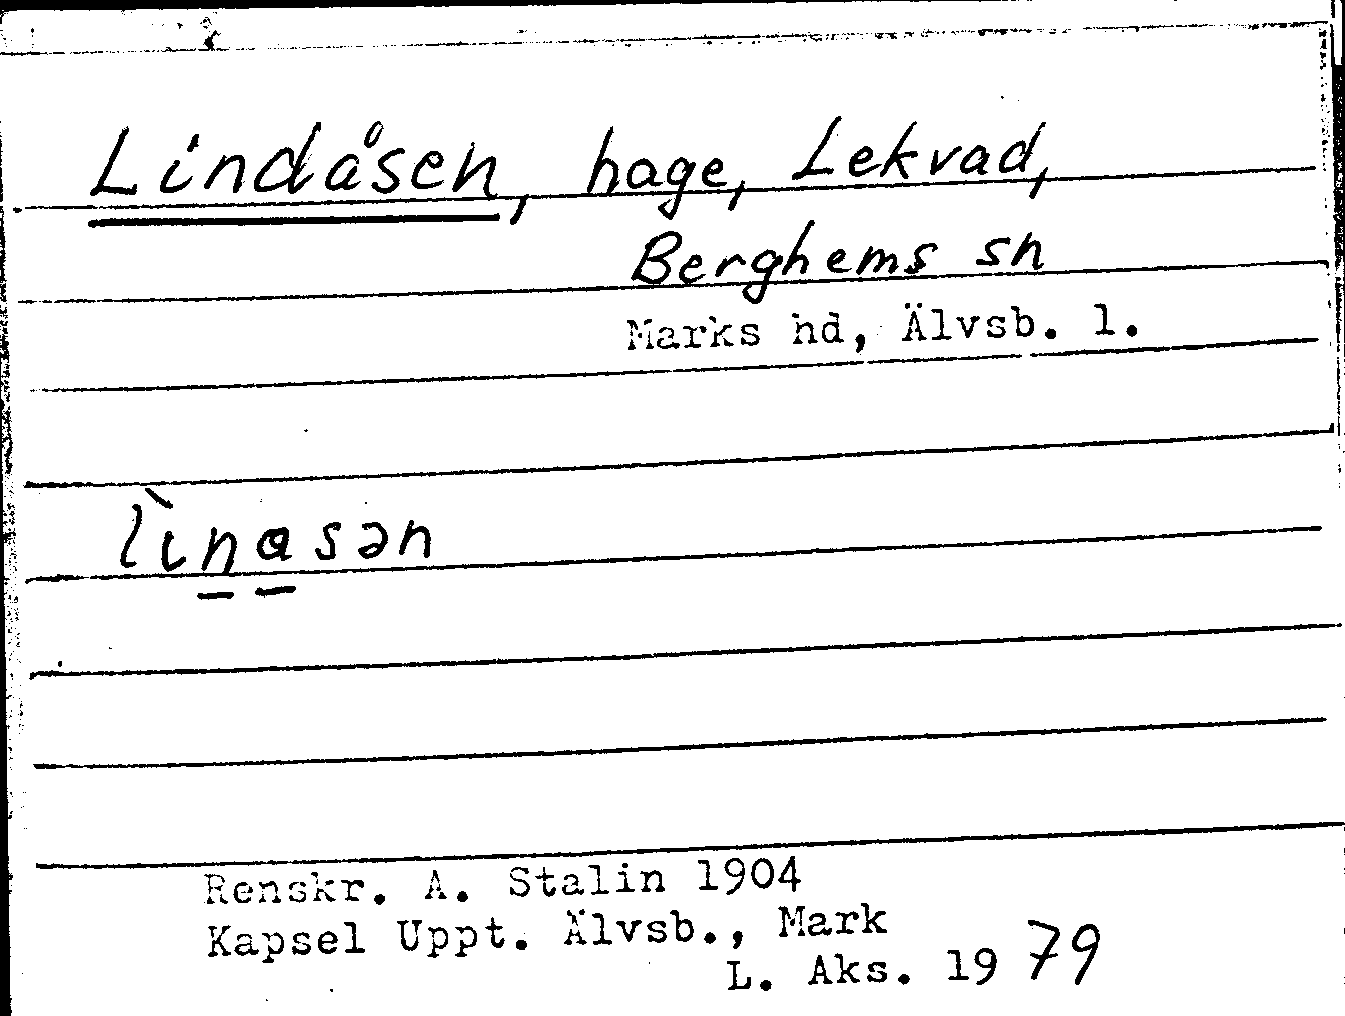 Lindåsen, hage, Lekvad,
Berghems sn
Marks hd, Älvsb. l.
lìnasən
Renskr. A. Stalin 1904
Kapsel Uppt. Älvsb., Mark
L. Aks. 1979